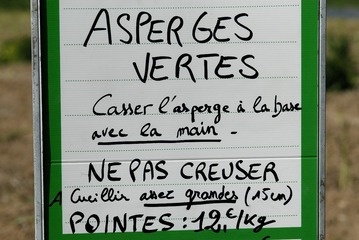 ASPERGES
VERTES
Casser l'asperge à la base
avec la main -
NE PAS CREUSER
A Cueillir assez grandes (15cm)
POINTES : 12,€/kg